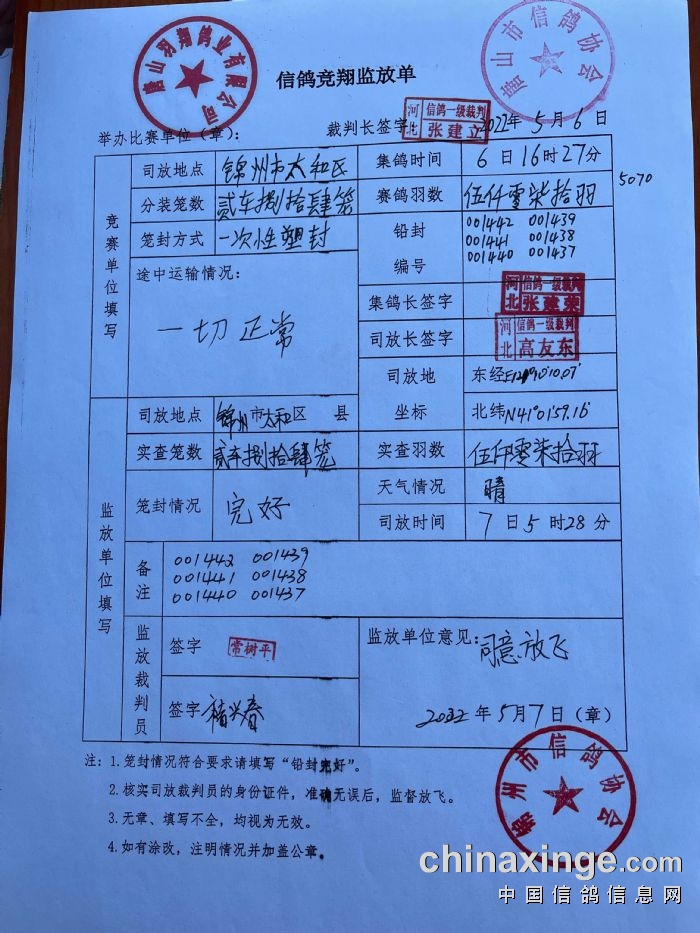 唐山羽翔鸽业有限公司
唐山市信鸽协会
信鸽竞翔监放单
举办比赛单位（章）：
裁判长签字：
河北 信鸽一级裁判 张建立
2022年5月6日
竞赛单位填写
司放地点 锦州市太和区 集鸽时间 6日16时27分
分装笼数 贰车捌拾肆笼 赛鸽羽数 伍仟零柒拾羽 5070
笼封方式 一次性塑封 铅封编号
001442 001439
001441 001438
001440 001437
途中运输情况：
一切正常
集鸽长签字 河北 信鸽一级裁判 张建荣
司放长签字 河北 信鸽一级裁判 高友东
司放地坐标 东经
北纬N41°0159.16′
监放单位填写
司放地点 锦州市太和区 县
实查笼数 贰车捌拾肆笼 实查羽数 伍仟零柒拾羽
笼封情况 完好 天气情况 晴
司放时间 7日5时28分
备注
001442 001439
001441 001438
001440 001437
监放裁判员
签字 常树平
签字 兴春
监放单位意见：同意放飞
2022年5月7日（章）
锦州市信鸽协会
注：1.笼封情况符合要求请填写“铅封完好”。
2.核实司放裁判员的身份证件，准确无误后，监督放飞。
3.无章、填写不全，均视为无效。
4.如有涂改，注明情况并加盖公章。
chinaxinge.com
中国信鸽信息网